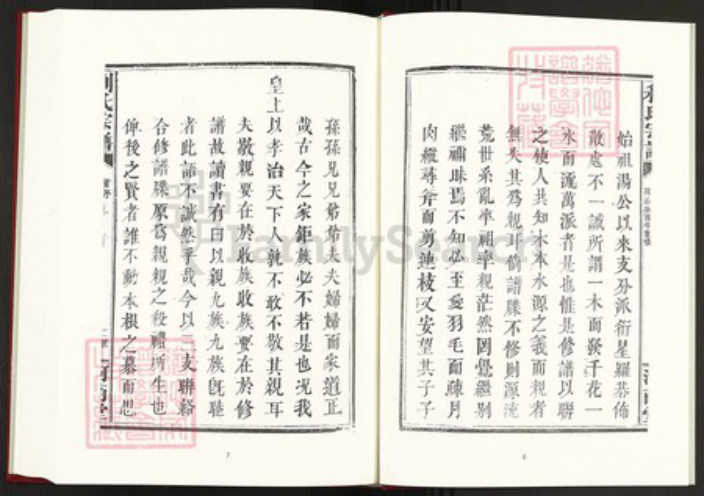 始祖湯公以來支分派衍星羅碁佈
散處不一誠所謂一木而發千花一
水而流萬派者是也惟是修譜以聯
之使人共知木本水源之義而親者
無失其為親耳倘譜牒不修則源流
荒世系亂卑祖率親茫然罔覺繼別
繼禰昧焉不知必至愛羽毛而疎月
肉縱尋斧而剪連枝又安望其子子
6
孫孫兄兄弟弟夫夫婦婦而家道正
哉古今之家鉅族必不若是也况我
皇上以孝治天下人孰不敢不敬其親耳
夫敬親要在於收族收族要在於修
譜故讀書有曰以親九族九族旣睦
者此語不誠然乎哉今以一支聯絡
合修譜牒原為親親之殺禮所生也
俾後之賢者誰不動本根之慕而思
7
氏宗譜
FamilySearch